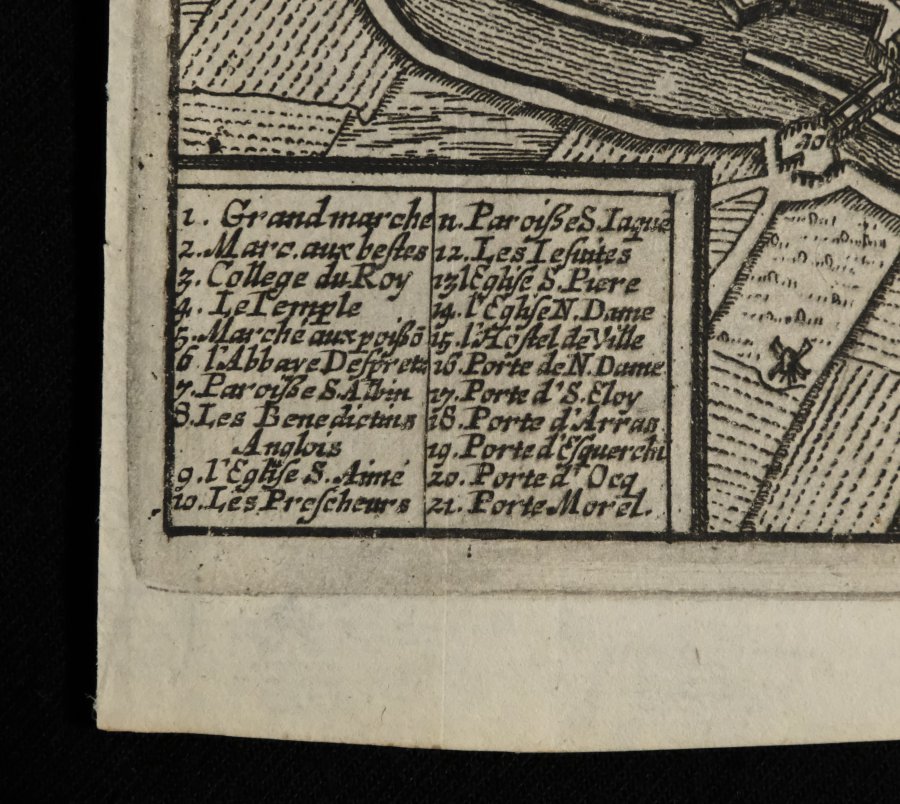 1. Grand marche
2. Marc. aux bestes
3. College du Roy
4. Le Temple
5. Marché aux poißō
6. l'Abbaye Despretz
7. Paroiße S. Albin
8. Les Benedictins
Anglois
9. l'Eglise S. Aimé
10. Les Prescheurs
11. Paroiße S. Iaque
12. Les Iesuites
13 l'Eglise S. Piere
14. l'Eglise N. Dame
15. l'Hostel de Ville
16. Porte de N. Dame
17. Porte d'S. Eloy
18. Porte d'Arras
19. Porte d'Esquerchi
20. Porte d'Ocq
21. Porte Morel.
20